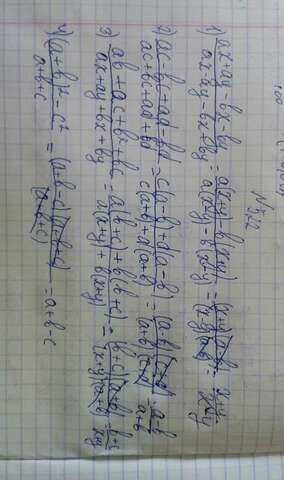 N512
1) ax+ay-bx-by / ax-ay-bx+by = a(x+y)-b(x+y) / a(x-y)-b(x-y) = (x+y)(a-b) / (x-y)(a-b) = x+y / x-y
2) ac-bc+ad-bd / ac+bc+ad+bd = c(a-b)+d(a-b) / c(a+b)+d(a+b) = (a-b)(c+d) / (a+b)(c+d) = a-b / a+b
3) ab+ac+b²+bc / ax+ay+bx+by = a(b+c)+b(b+c) / a(x+y)+b(x+y) = (b+c)(a+b) / (x+y)(a+b) = b+c / x+y
4) (a+b)²-c² / a+b+c = (a+b-c)(a+b+c) / (a+b+c) = a+b-c